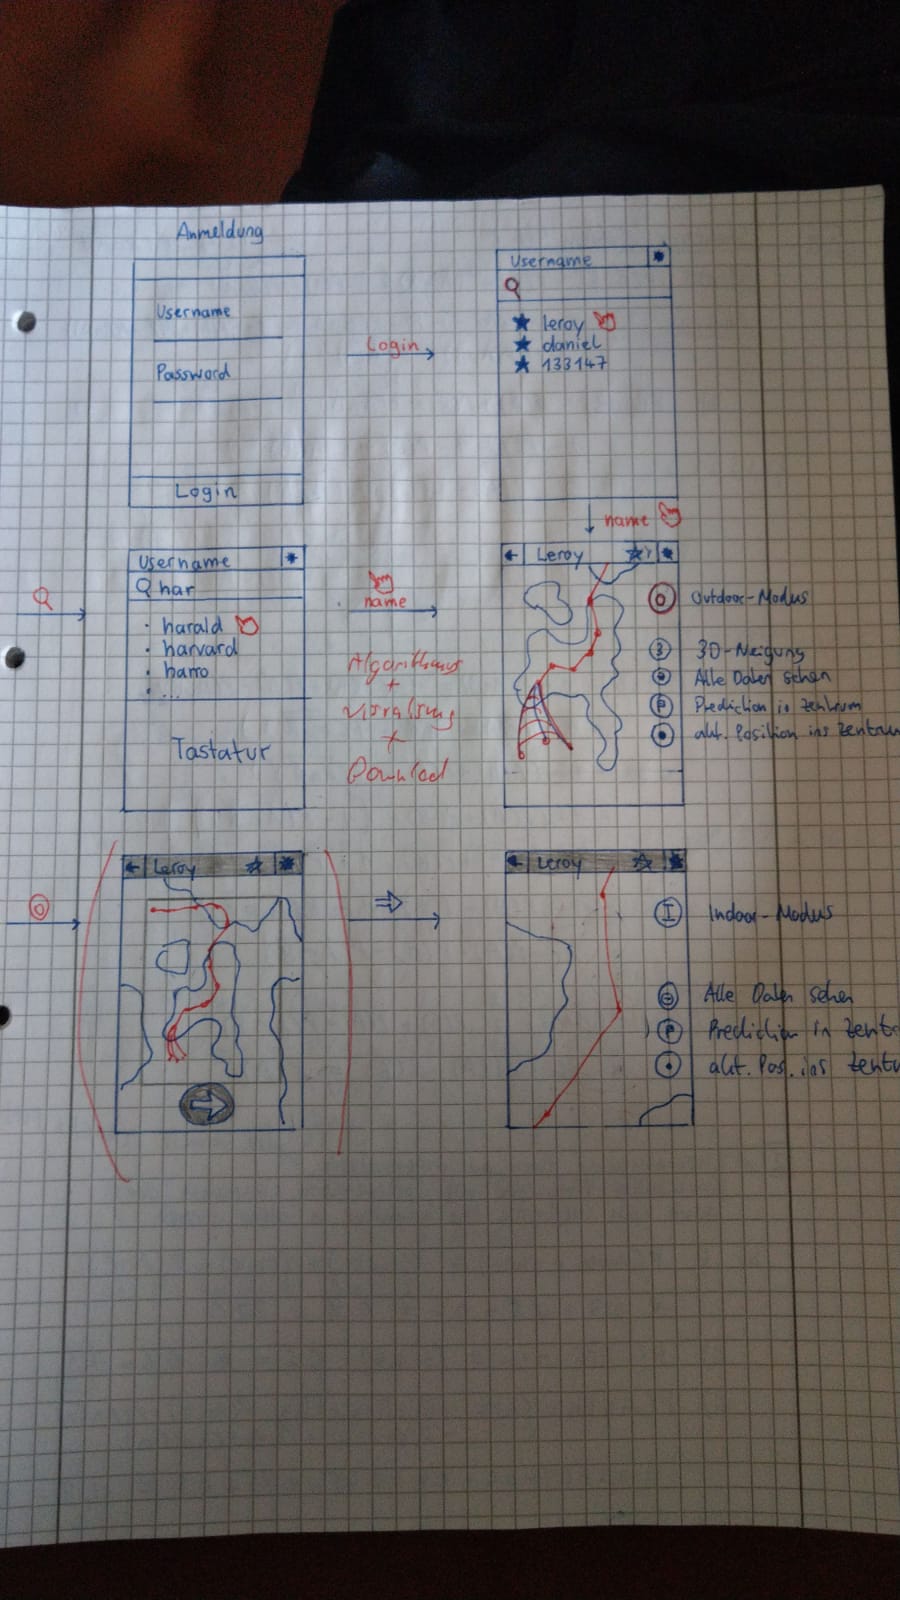 Anmeldung
Username
Password
Login
Login
Username
leroy
daniel
133147
name
Username
har
harald
harvard
harro
...
Tastatur
name
Algorithmus
+
+
Download
Leroy
Outdoor-Modus
3 3D-Neigung
Alle Daten sehen
P Prediction in Zentrum
akt. Position ins Zentrum
Leroy
Leroy
I Indoor-Modus
Alle Daten sehen
P Prediction in Zentr
akt. Pos. ins Zentr